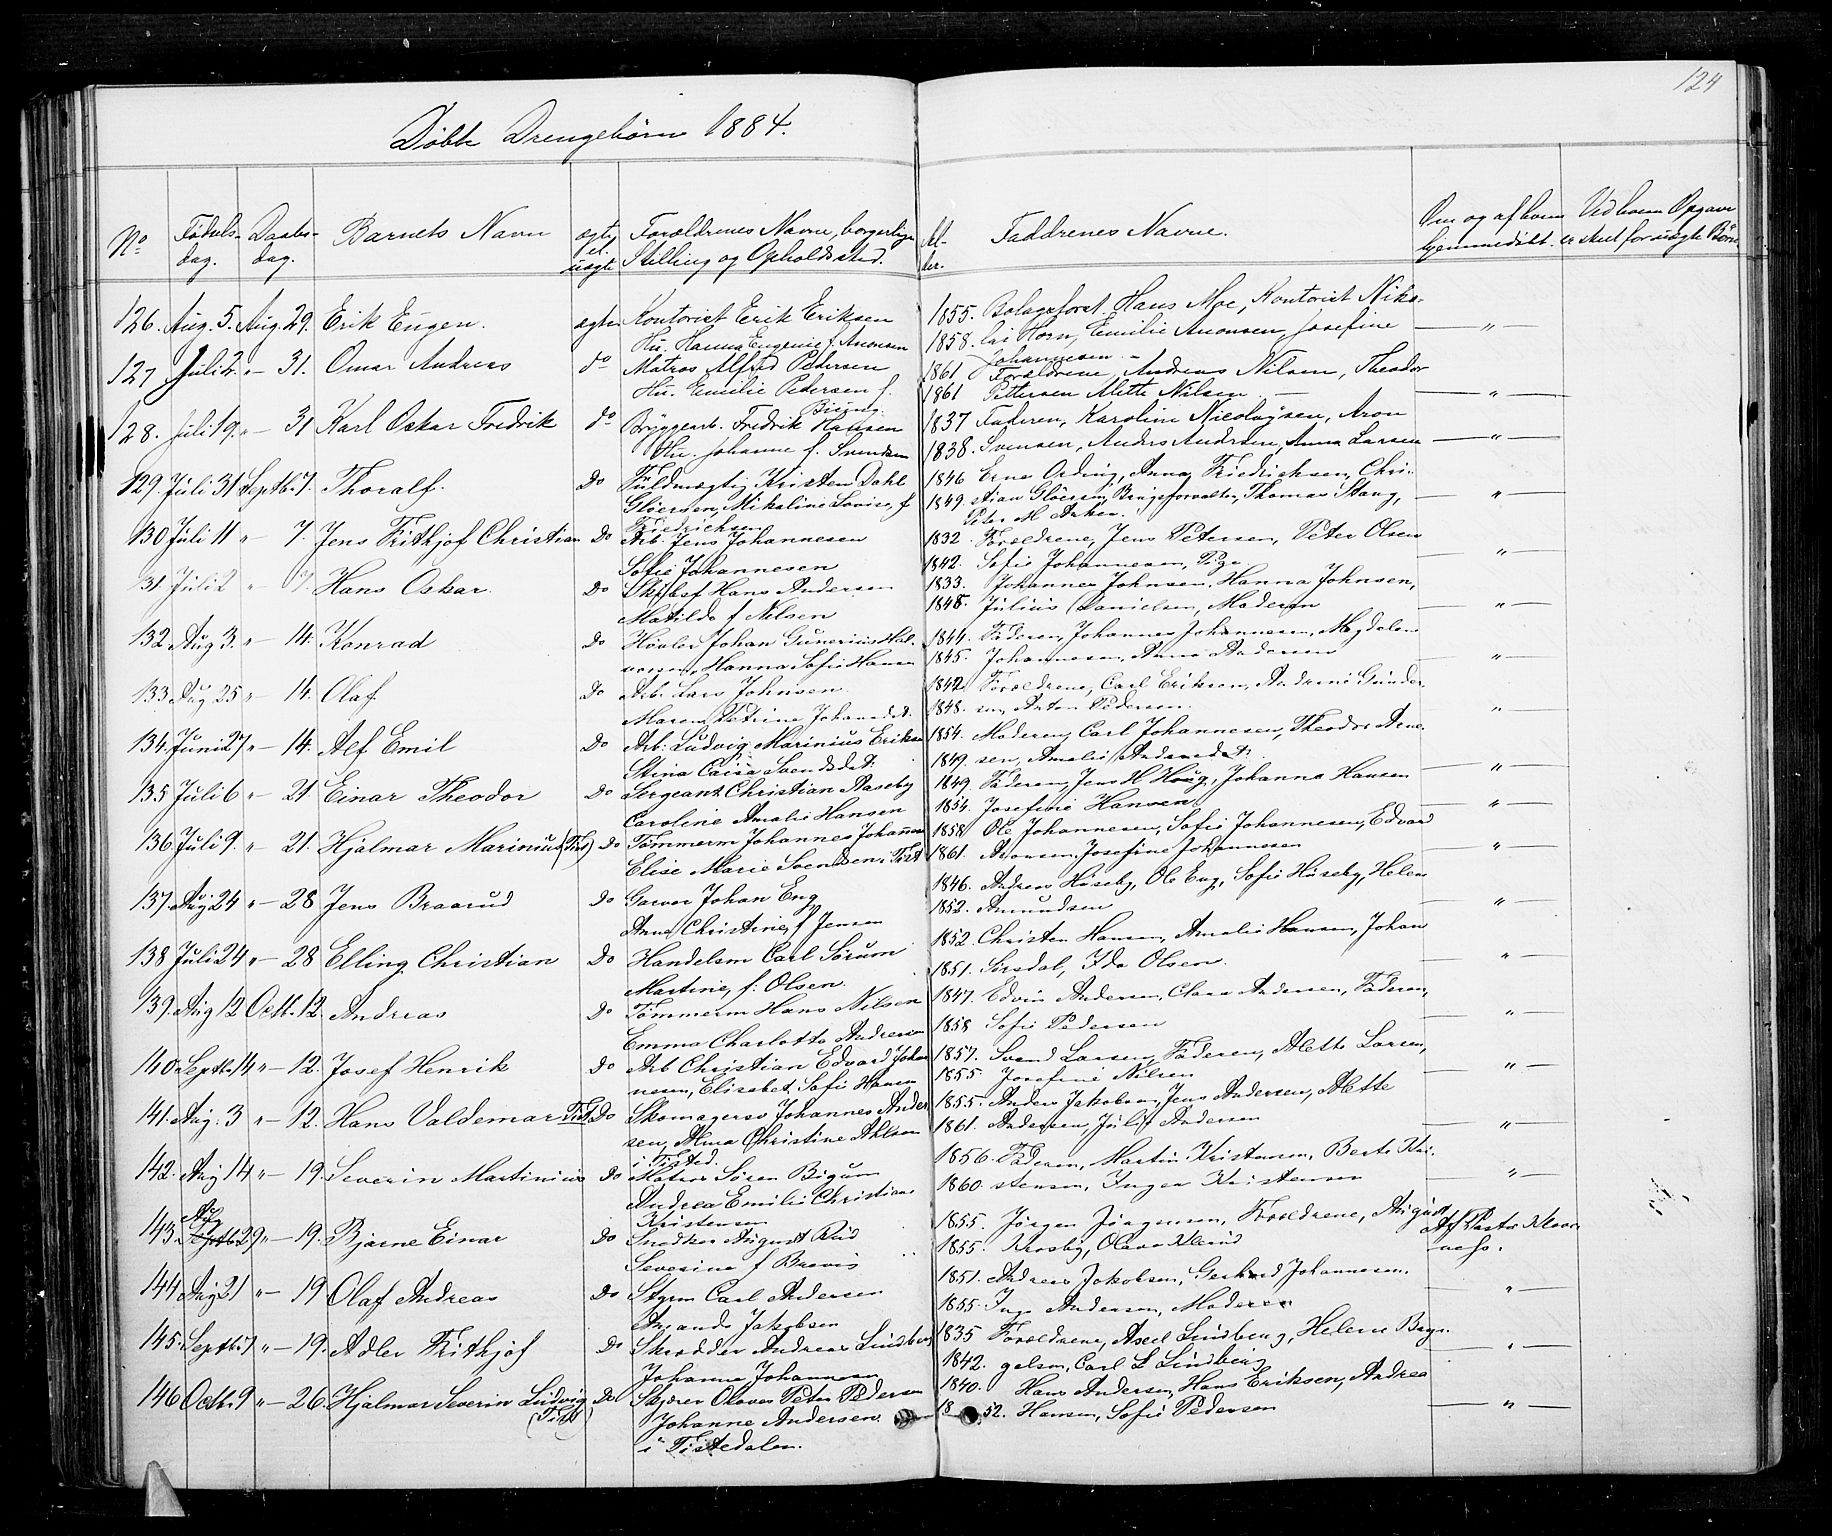 124
Døbte Drengebørn 1884.
No Fødelsdag. Daabsdag. Barnets Navn ægte el. uægte Forældrenes Navne, borgerlige Stilling og Opholdssted. Alder. Faddrenes Navne. Om og af hvem hjemmedøbt. Ved hvem Opgave er skeet for uægte Børn
126. Aug. 5. Aug. 29. Erik Eugen. ægte Kontorist Erik Eriksen 1855. Hans Moe, Kontorist Niko-
Hu. Hanna Eugenie f. Aronsen 1858. lai Horn, Emilie Aronsen, Josefine — " —
Johannesen –
127 Juli 2. " – 31. Omar Andreas do Matros Alfred Pedersen 1861 Forældrene, Andreas Nilsen, Theodor
Hu. Emilie Pedersen f. 1861 Pettersen Alette Nilsen — " —
128. Juli 19. " – 31 Karl Oskar Fredrik do Bryggearb. Fredrik Hansen 1837 Faderen, Karoline Nicolaysen, Aron
Hu. Johanne f. Svendsen 1838. Svensen, Anders Andersen, Anna Larsen — " —
129. Juli 31 Septb. 7. Thoralf. Do Fuldmægtig Kristen Dahl 1846 Erna Ording, Anna Friedrichsen, Chri-
Gløersen, Mikaline Lovise, f 1849. stian Gløersen, Brugsforvalter, Thomas Stang, — " —
Friedrichsen Peter M Anker.
130 Juli 11 " – 7. Jens Frithjof Christian Do Arb. Jens Johannesen 1832. Forældrene, Jens Petersen, Peter Olsen
Sofie Johannesen 1842. Sofie Johannesen, Pige — " —
31. Juli 2 " – 7. Hans Oskar. Do Hans Andersen 1833. Johannes Johnsen, Hanna Johnsen,
Matilde f Nilsen 1848. Julius Danielsen, Moderen — " —
132 Aug 3. " – 14. Konrad Do Høvler Johan Gunerius Hal- 1844. Faderen, Johannes Johannesen, Magdalene
vorsen, Hanna Sofie Hansen 1845. Johannesen, Anne Andersen — " —
133 Aug 25 " – 14. Olaf Do Arb. Lars Johnsen 1842 Forældrene, Carl Eriksen, Andrine Gunder-
Maren Petrine Johansdt. 1848. sen, Anton Pedersen. "
134. Juni 27 " – 14. Alf Emil Do Arb. Ludvig Marinius Eriksen 1854. Moderen, Carl Johannesen, Theodor Arne-
Stina Caisa Svendsdat. 1849. sen, Amalie Andersdat. — " —
135 Juli 6 " – 21. Einar Theodor Do Sergeant Christian Raseby 1849. Faderen, Jens H Houg, Johanna Hansen
Caroline Amalie Hansen 1854. Josefine Hansen — " —
136 Juli 9. " – 21. Hjalmar Marinius (Tist) Do Tømmerm Johannes Johannesen 1858 Ole Johannesen, Sofie Johannesen, Edvard
Elise Marie Svendsen, Tist 1861. Aronsen, Josefine Johannesen — " —
137. Aug 24 " – 28 Jens Braarud Do Garver Johan Eng 1846. Andreas Huseby, Ole Eng, Sofie Huseby, Helene
Anna Christine, f Jensen 1852. Amundsen — " —
138 Juli 24 " – 28 Elling Christian Do Handelsm Carl Sørum 1852. Christen Hansen, Amalie Hansen, Johan
Martine, f. Olsen 1851. Sirsdal, Ida Olsen. — " —
139. Aug 12 Octb. 12. Andreas Do Tømmerm Hans Nilsen 1847. Edvin Andersen, Clara Andersen, Faderen,
Emma Charlotte Andersen 1858 Sofie Pedersen — " —
140 Septb. 14 " – 12. Josef Henrik Do Arb Christian Edvard Johan- 1857. Svend Larsen, Faderen, Alette Larsen,
nesen, Elisabet Sofie Hansen 1855. Josefine Nilsen — " —
141. Aug. 3 " – 12. Hans Valdemar Tist. Do Skomagersv Johannes Ander- 1855. Anders Jakobsen, Jens Andersen, Alette
sen, Alma Christine Ahlsen 1861. Andersen, Julie Andersen — " —
i Tisted.
142. Aug 14 " – 19. Severin Martinius Do Matros Søren Bigum 1856. Faderen, Martin Kristensen, Berte Kri-
Andrea Emilie Christiane 1860. stensen, Inger Kristensen — " —
Kristensen
143. Aug Septb. 29 " – 19. Bjarne Einar Do Snedker August Rud 1855. Jørgen Jørgensen, Forældrene, August Af Pastor Klave-
Severine f Brevig 1855. Krosby, Olava Klerud ness.
144 Aug 21 " – 19 Olaf Andreas Do Styrm Carl Andersen 1851. Andreas Jakobsen, Gerhard Johannesen.
Amanda Jakobsen 1855. Andersen, Moderen — " —
145. Septb. 7 " – 19. Adler Frithjof Do Skrædder Andreas Lindberg 1835 Forældrene, Axel Lindberg, Helene Bryn-
Johanne Johannesen 1842. gelsen, Carl L Lindberg — " —
146 Octb. 9 " – 26. Hjalmar Severin Ludvig Do Skjærer Olaves Peter Pedersen 1840. Hans Andersen, Hans Eriksen, Andrea
(Tist) Johanne Andersen 1852. Hansen, Sofie Pedersen — " —
i Tistedalen.